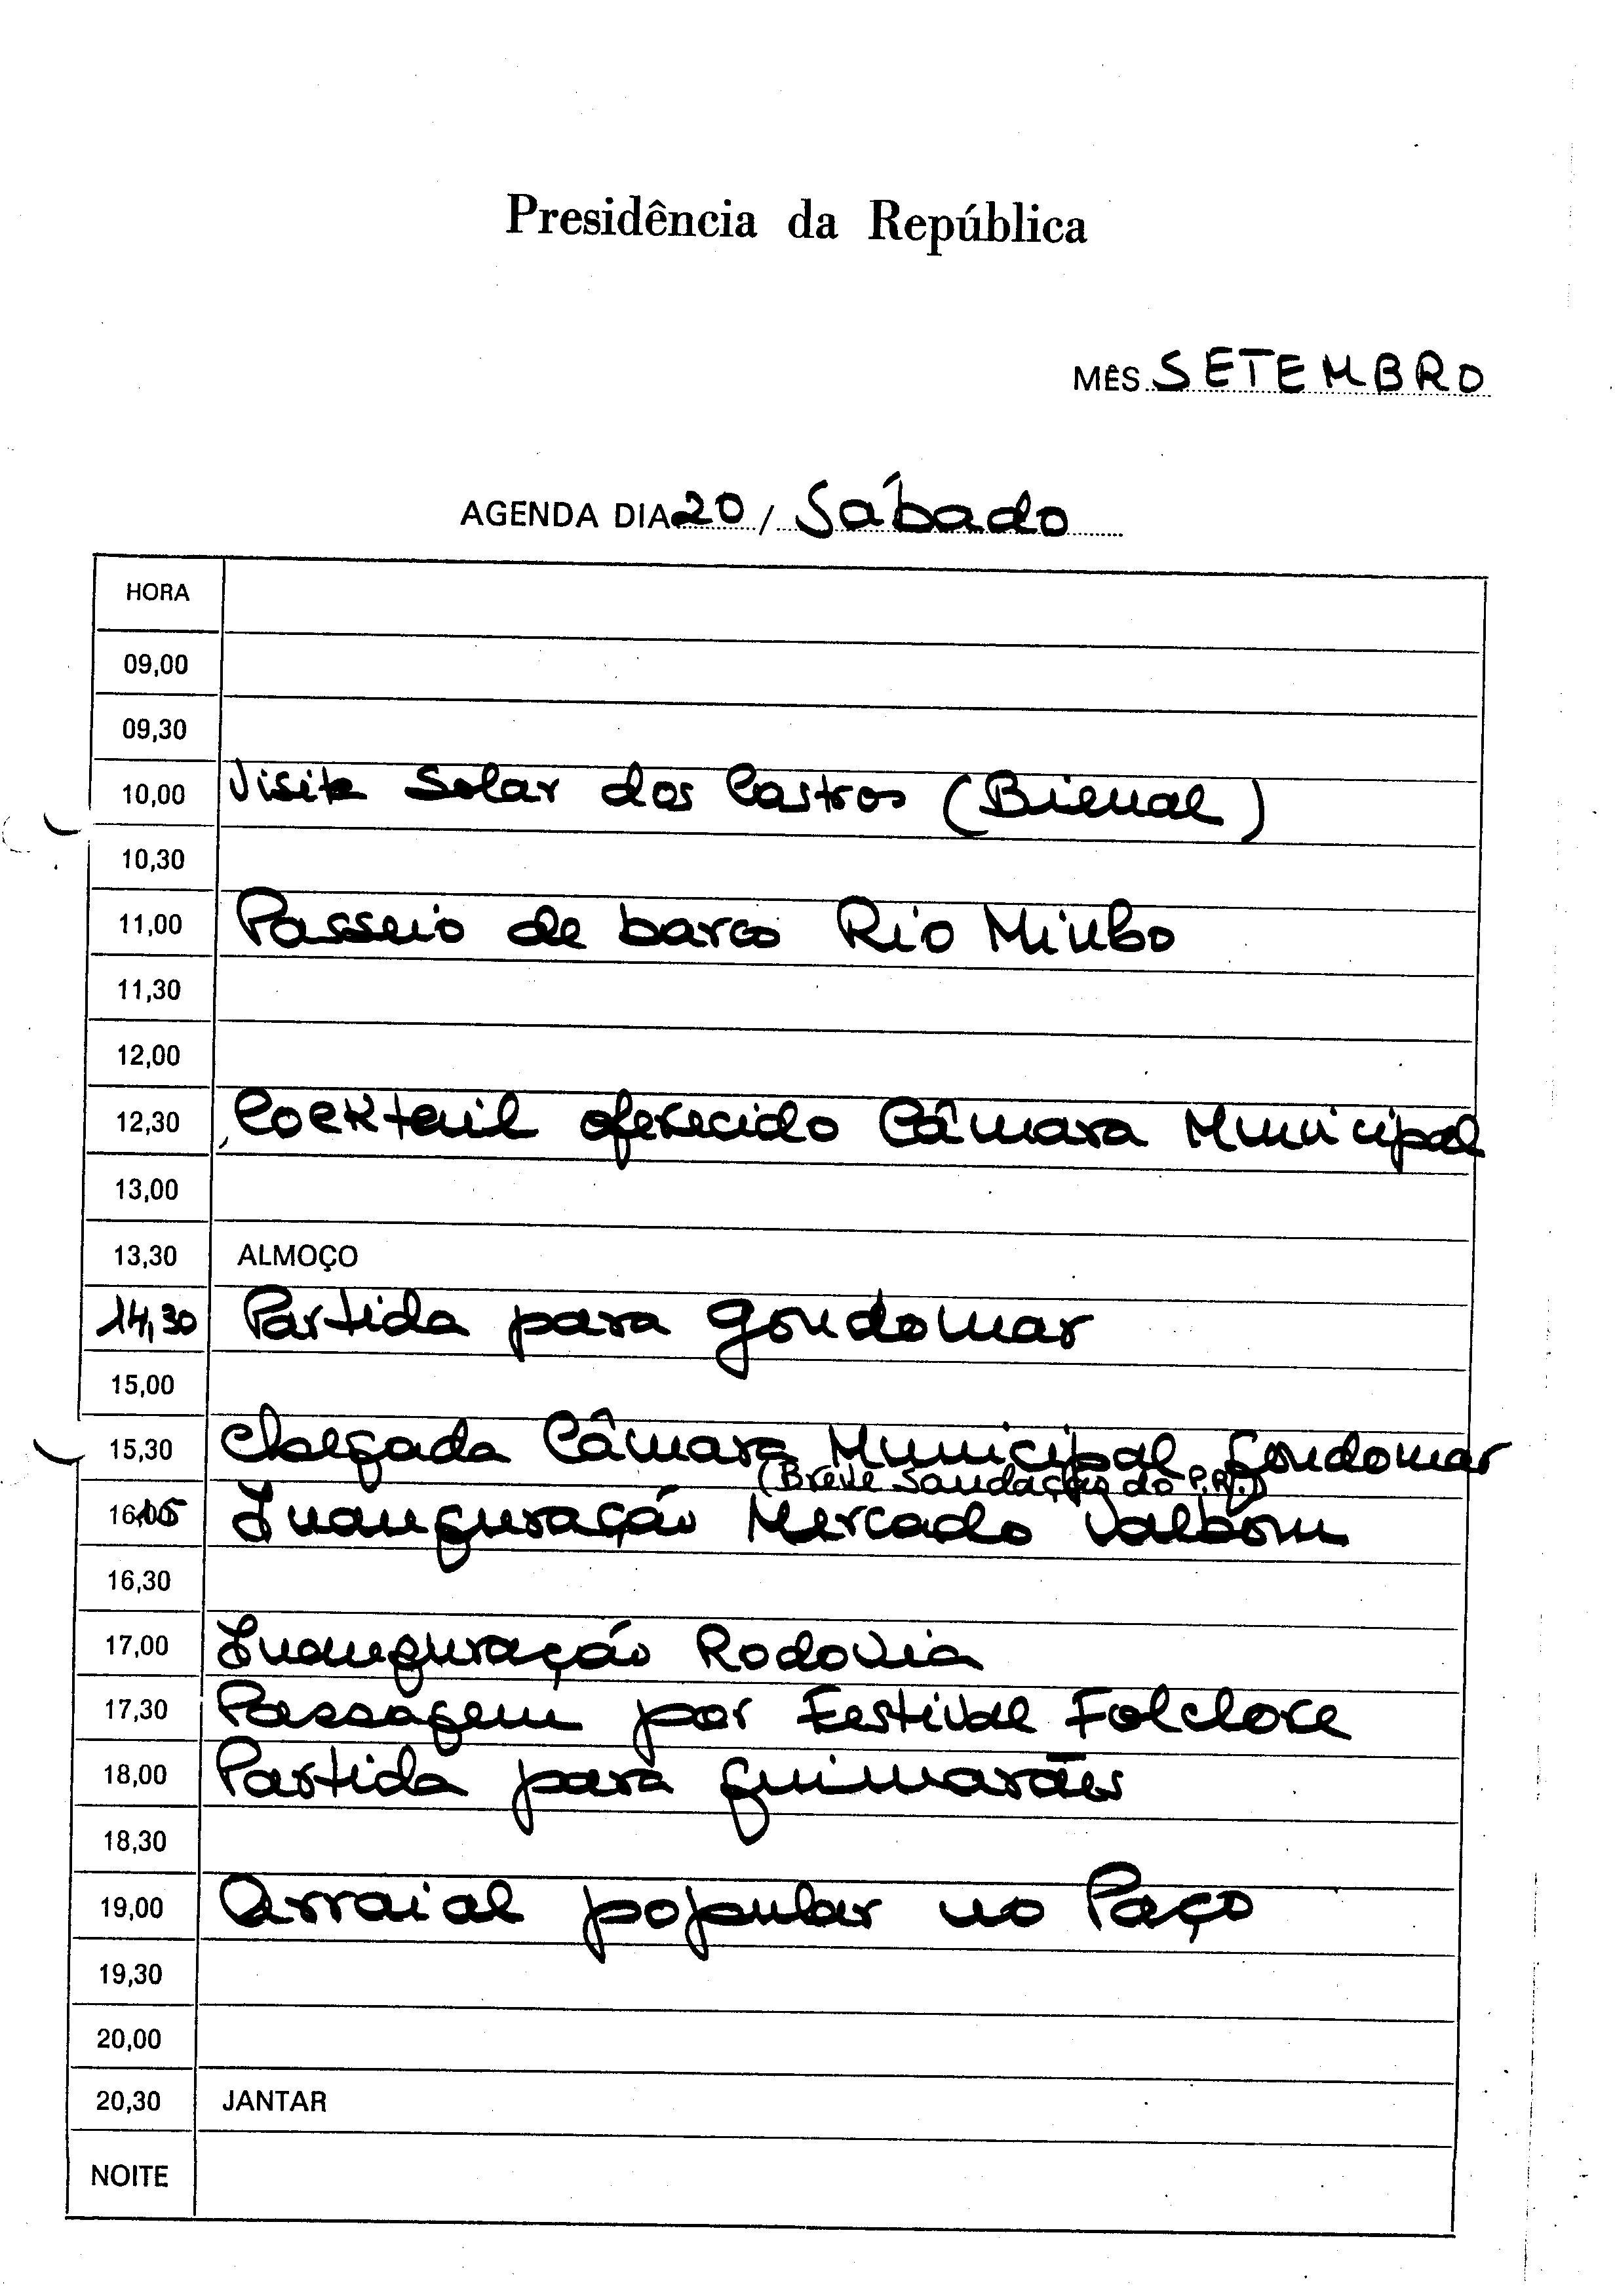 Presidência da República
MÊS SETEMBRO
AGENDA DIA 20 / Sábado
HORA
09,00
09,30
10,00 Visita Solar dos Castros (Bienal)
10,30
11,00 Passeio de barco Rio Minho
11,30
12,00
12,30 Cocktail oferecido Câmara Municipal
13,00
13,30 ALMOÇO
14,30 Partida para Gondomar
15,00
15,30 Chegada Câmara Municipal Gondomar
(Breve saudação do P.R.)
16,15 Inauguração Mercado Valbom
16,30
17,00 Inauguração Rodovia
17,30 Passagem por Festival Folclore
18,00 Partida para Guimarães
18,30
19,00 Arraial popular no Paço
19,30
20,00
20,30 JANTAR
NOITE